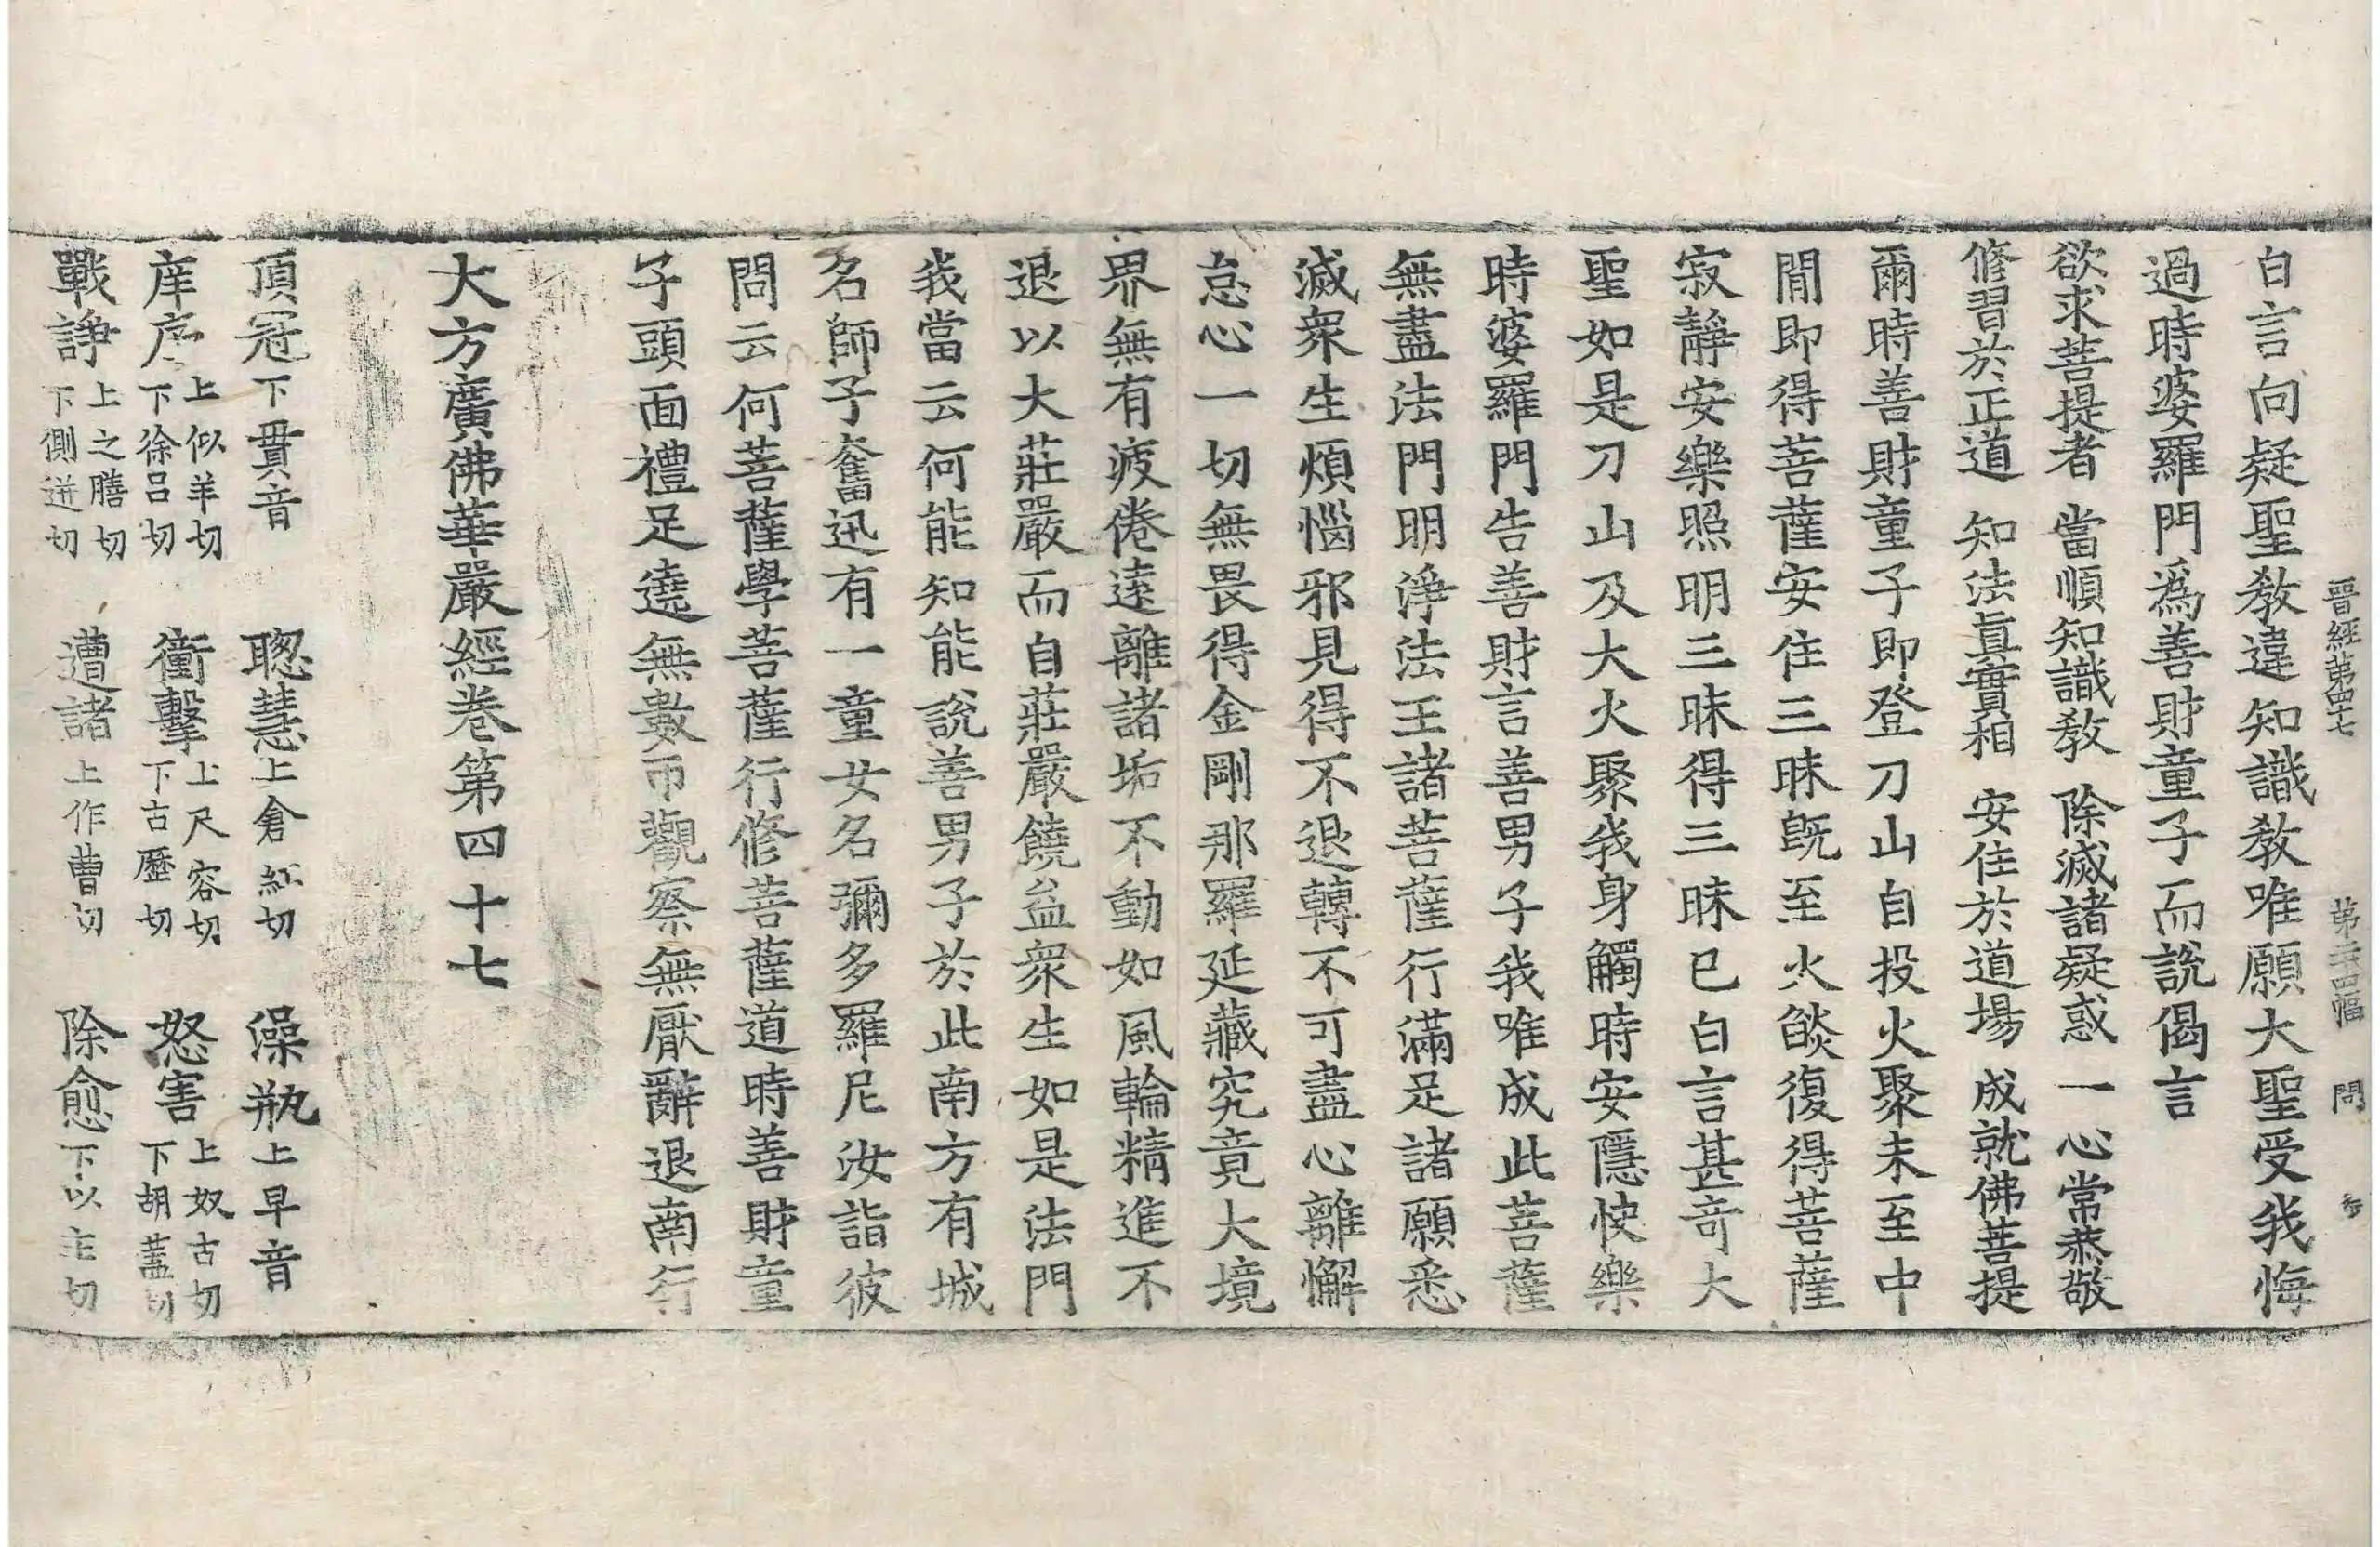 晋經第四十七　第二十四幅　問　参
白言向疑聖教違知識教唯願大聖受我悔
過時婆羅門爲善財童子而說偈言
欲求菩提者　當順知識教　除滅諸疑惑　一心常恭敬
修習於正道　知法眞實相　安住於道場　成就佛菩提
爾時善財童子即登刀山自投火聚未至中
間即得菩薩安住三昧旣至火燄復得菩薩
寂靜安樂照明三昧得三昧已白言甚竒大
聖如是刀山及大火聚我身觸時安隱快樂
時婆羅門告善財言善男子我唯成此菩薩
無盡法門明淨法王諸菩薩行滿足諸願悉
滅衆生煩惱邪見得不退轉不可盡心離懈
怠心一切無畏得金剛那羅延藏究竟大境
界無有疲倦遠離諸垢不動如風輪精進不
退以大莊嚴而自莊嚴饒益衆生如是法門
我當云何能知能說善男子於此南方有城
名師子奮迅有一童女名彌多羅尼汝詣彼
問云何菩薩學菩薩行修菩薩道時善財童
子頭面禮足遶無數帀觀察無厭辭退南行
大方廣佛華嚴經卷第四十七
頂冠下貫音　聦慧上倉紅切　澡瓶上早音
庠序上似羊切下徐吕切　衝擊上尺容切下古歷切　怒害上奴古切下胡蓋切
戰諍上之膳切下側迸切　遭諸上作曹切　除愈下以主切